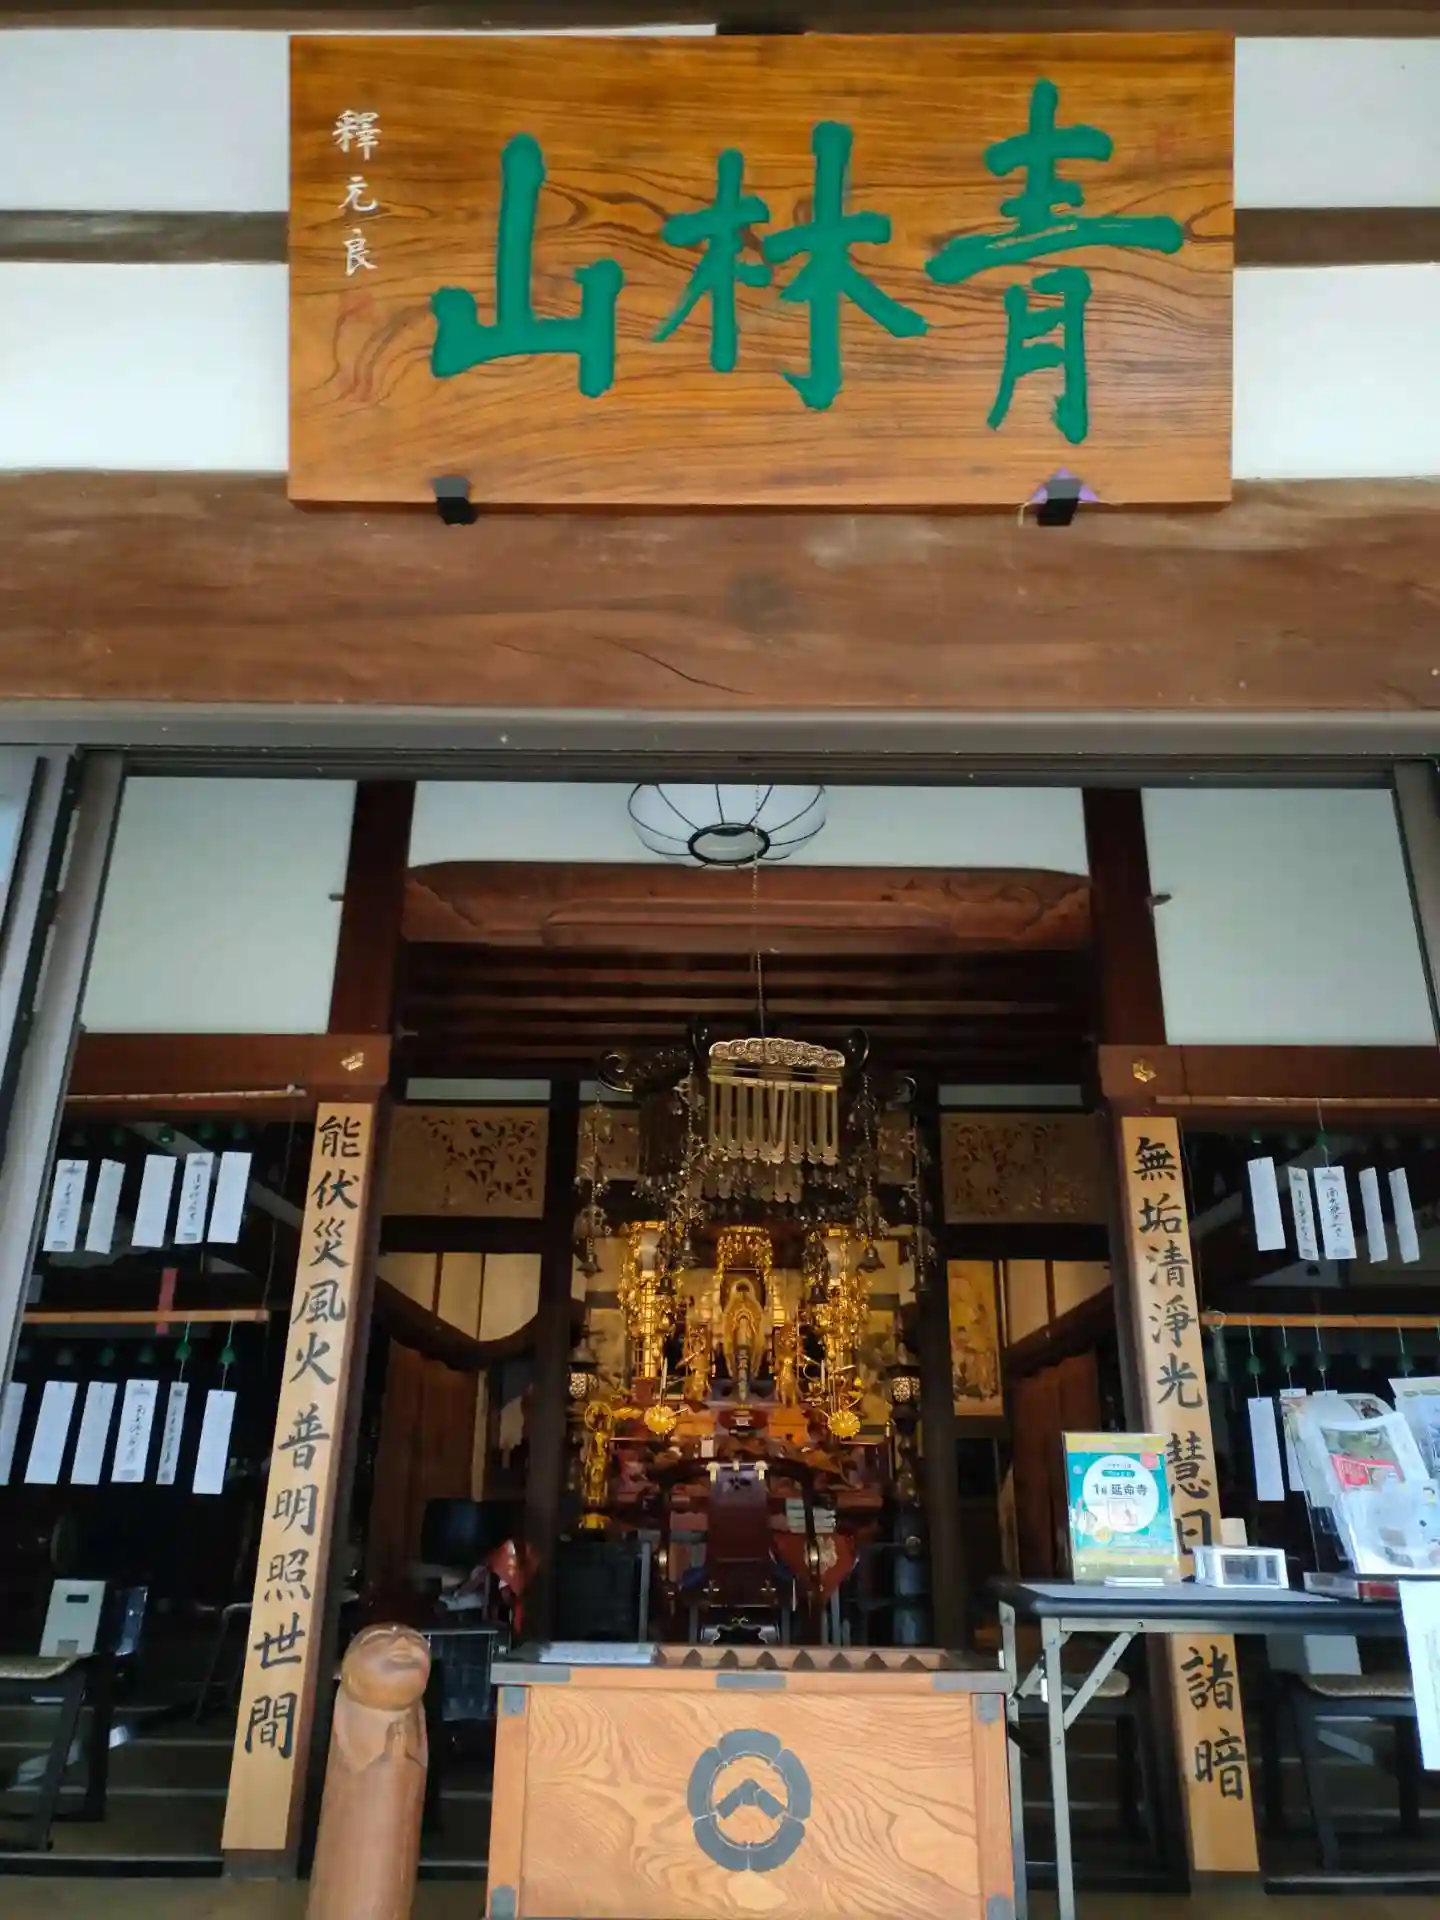 青林山
釋元良
無垢清淨光 慧日 諸暗
能伏災風火 普明照世間
1番 延命寺